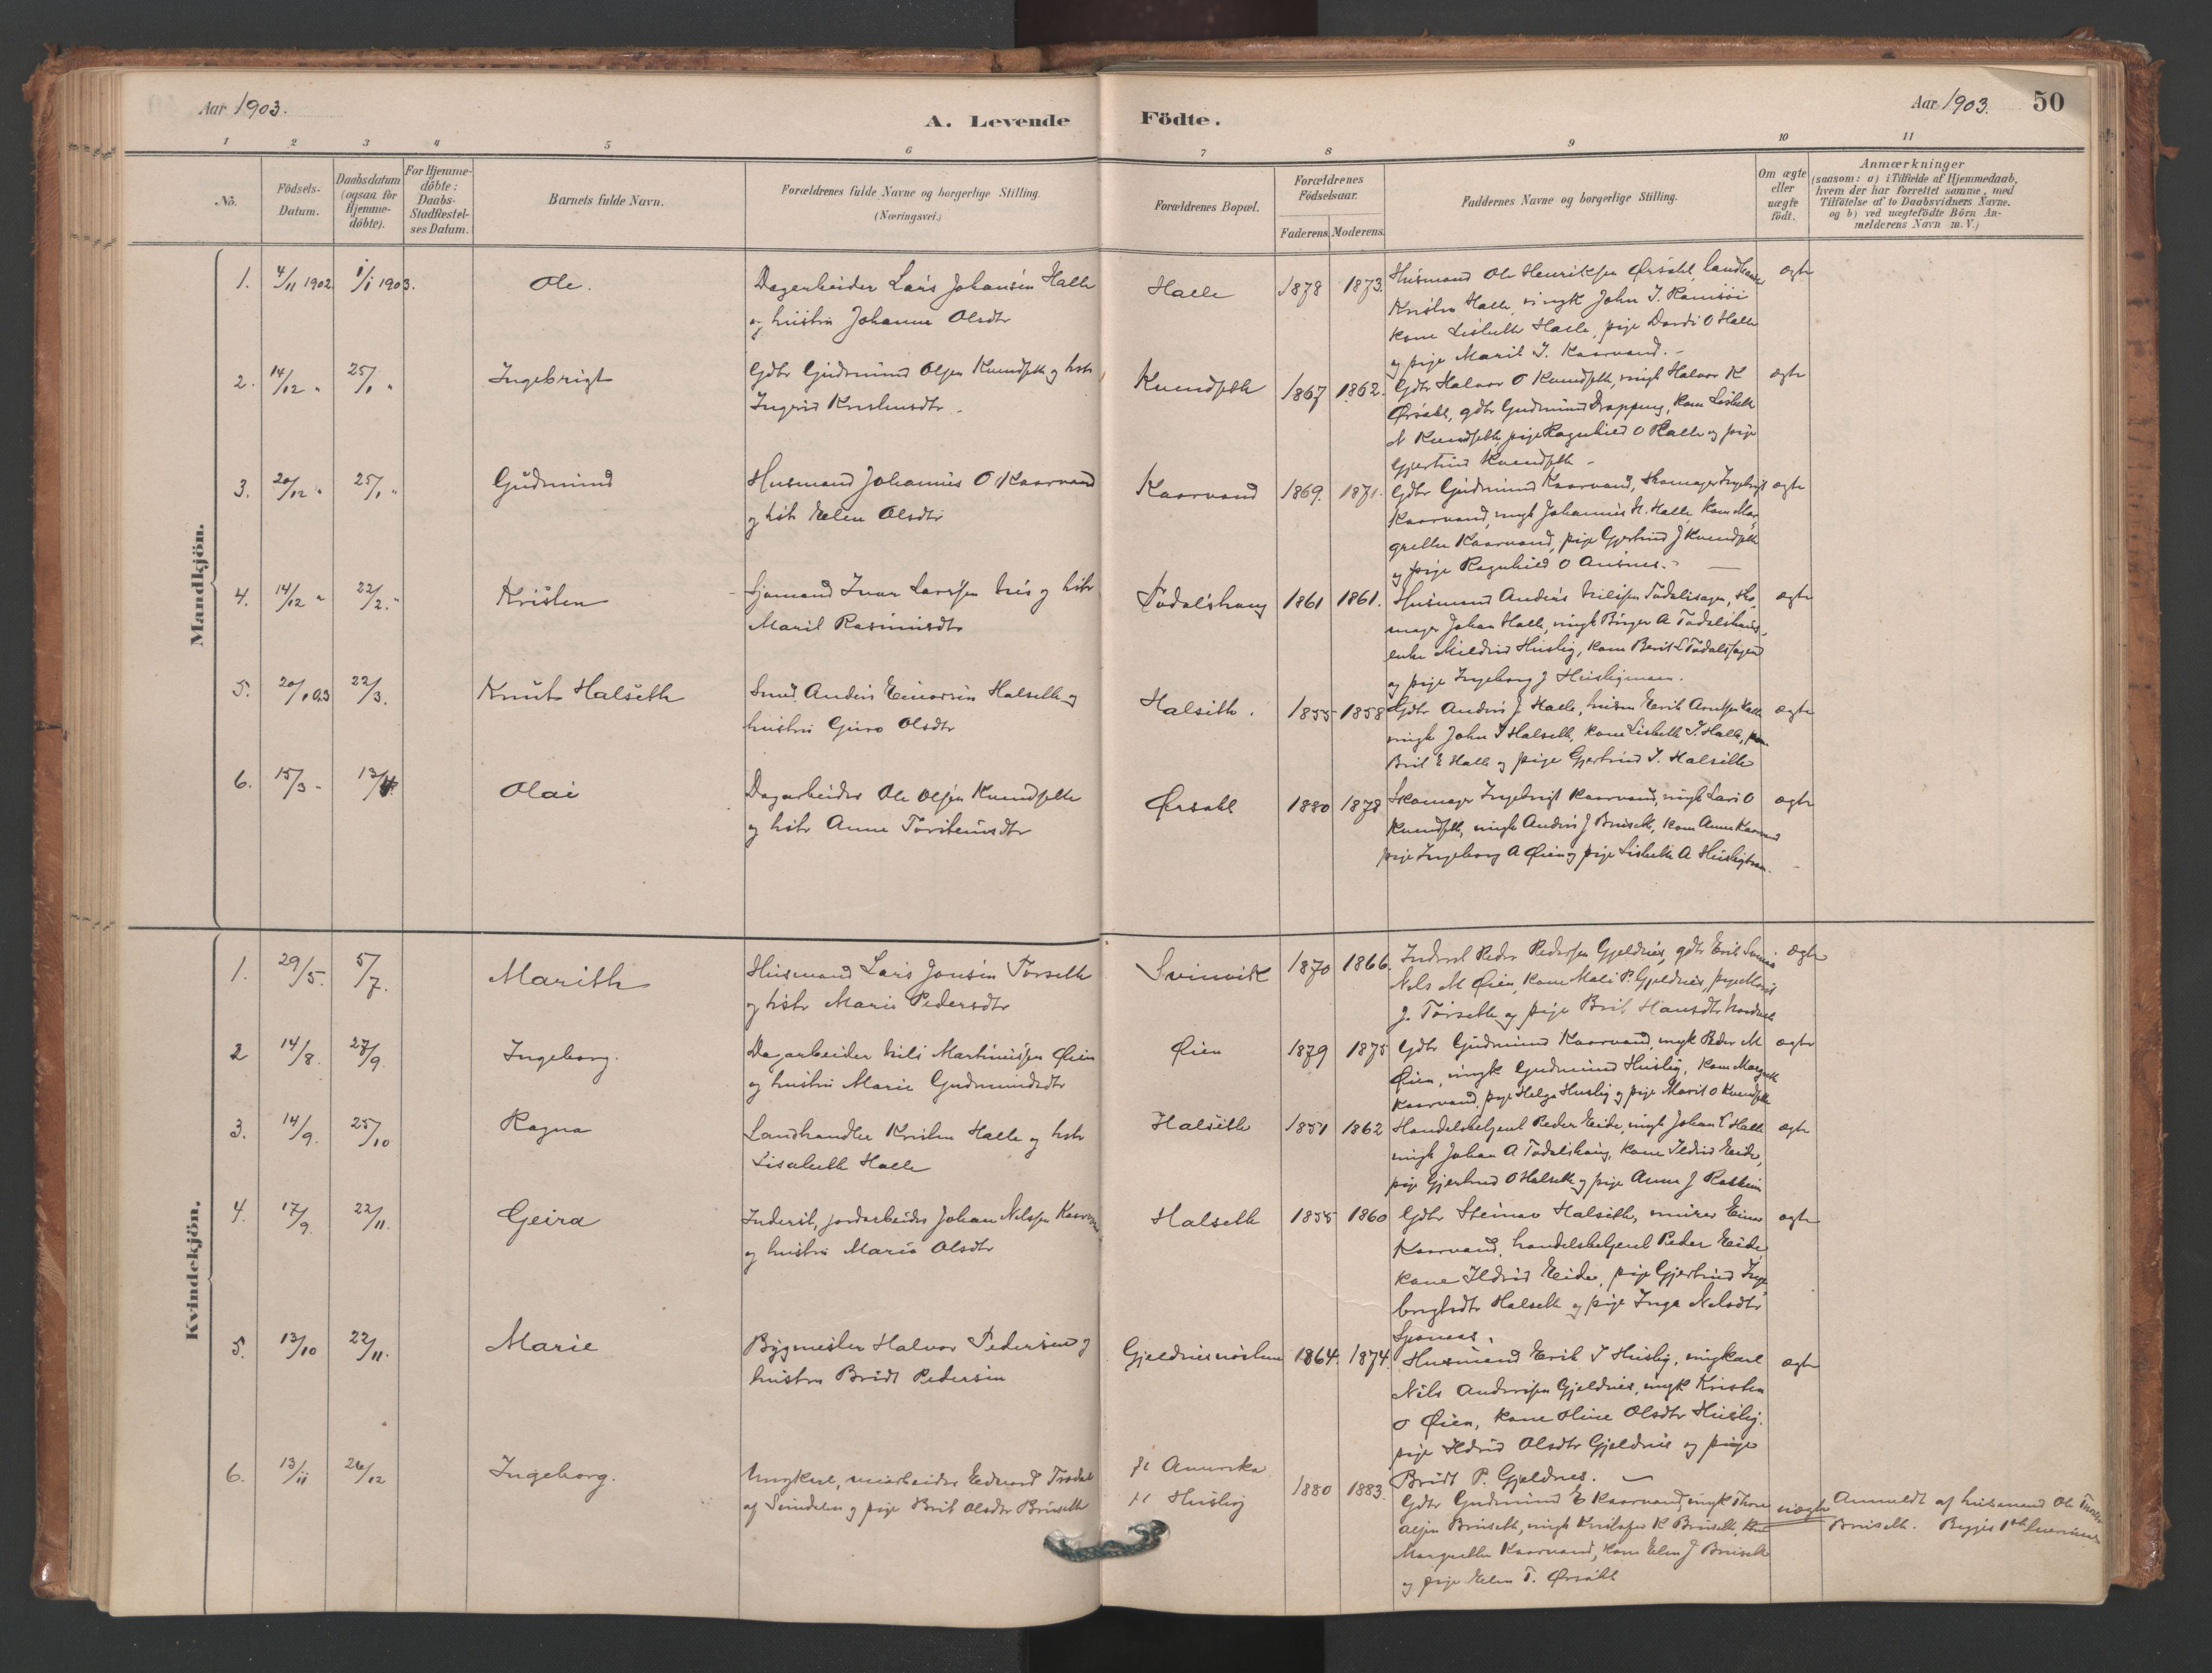 Aar 1903.
A. Levende Födte.
Aar 1903. 50
1 2 3 4 5 6 7 8 9 10 11
No.
Födsels-Datum.
Daabsdatum (ogsaa for Hjemme-döbte).
For Hjemme-döbte: Daabs-Stadfæstel-ses Datum.
Barnets fulde Navn.
Forældrenes fulde Navne og borgerlige Stilling.
(Næringsvei.)
Forældrenes Bopæl.
Forældrenes Födselsaar.
Faderens. Moderens.
Faddernes Navne og borgerlige Stilling.
Om ægte eller uægte födt.
Anmærkninger
(saasom: a) i Tilfælde af Hjemmedaab,
hvem der har forrettet samme, med
Tilföielse af to Daabsvidners Navne.
og b) ved uægtefödte Börn An-
melderens Navn m. V.)
Mandkjön.
1. 4/11 1902 1/1 1903. Ole.
Dagarbeider Lars Johansen Halle
og hustru Johanne Olsdtr
Halle 1878 1873.
Husmand Ole Henriksen Ørsahl, landhandler
Kristen Halle, ungk John I. Ramsöi
kone Lisbeth Halle, pige Dordi O Halle
og pige Marit I. Kaarvand.-
ægte
2. 14/12 " 25/1 " Ingebrigt
Gdbr Gudmund Olsen Kvendseth og hstr
Ingrid Kristensdtr
Kvendseth 1867 1862.
Gdbr Halvor O Kvendseth, ungk Halvor K
Ørsahl, gdbr Gudmund Drøpping, kone Lisbeth
N Kvendseth, pige Ragnhild O Halle og pige
Gjertrud Kvendseth -
ægte
3. 20/12 " 25/1 " Gudmund
Husmand Johannes O Kaarvand
og hstr Elen Olsdtr
Kaarvand 1869. 1871.
Gdbr Gudmund Kaarvand, skomager Ingebrigt
Kaarvand, ungk Johannes H. Halle, kone Mar-
grethe Kaarvand, pige Gjertrud J Kvendseth
og pige Ragnhild O Ansnes.-
ægte
4. 14/12 " 22/2. " Kristen
Sjømand Ivar Larssen Nes og hstr
Marit Rasmusdtr
Todalshaug 1861 1861.
Husmand Anders Nilssen Todalsøgen, sko-
mager Johan Halle, ungk Birger A Todalshaug
enke Mildrid Huslig, kone Berit L Todalsøgen
og pige Ingeborg J Husligmoen.
ægte
5. 20/1 03 22/3. Knut Halseth
Smed Anders Einarsen Halseth og
hustru Guro Olsdtr
Halseth. 1855 1858
Gdbr Anders J Halle, husm Erik Arntsen Halle
ungk John I Halseth, kone Lisbeth I. Halle, pige
Brit E Halle og pige Gjertrud I. Halseth
ægte
6. 15/3 - 13/4 Olai
Dagarbeider Ole Olsen Kvendseth
og hstr Anne Torstensdtr
Ørsahl 1880 1878
Skomager Ingebrigt Kaarvand, ungk Lars O
Kvendseth, ungk Anders J Bruseth, kone Anne Kaarvand
pige Ingeborg A Øien og pige Lisbeth A Husligtrøen.
ægte
Kvindekjön.
1. 29/5. 5/7. Marith
Husmand Lars Jonsen Torseth
og hstr Marie Pedersdtr
Svinvik 1870 1866.
Inderst Peder Pedersen Gjeldnes, gdbr Erik
Nels M Øien, kone Mali P. Gjeldnes, pige Marit
J. Torseth og pige Brit Hansdtr
ægte
2 14/8. 27/9. Ingeborg.
Dagarbeider Nils Martinussen Øien
og hustru Marie Gudmundsdtr
Øien 1879 1875
Gdbr Gudmund Kaarvand, ungk Peder M
Øien, ungk Gudmund Huslig, kone Margreth
Kaarvand, pige Helga Huslig og pige Marit O Kvendseth
ægte
3. 14/9. 25/10 Ragna
Landhandler Kristen Halle og hstr
Lisabeth Halle
Halseth 1851 1862
Handelsbetjent Peder Eide, ungk Johan E Halle
ungk Johan A Todalshaug, kone Ildrid Eide,
pige Gjertrud O Halseth og pige Anne J Rodheim
ægte
4. 17/9. 22/11. Geira
Inderst, jordarbeider Johan Nelssen Kaarvand
og hustru Maria Olsdtr
Halseth 1855 1860
Gdbr Steinar Halseth, murer Einar
Kaarvand, handelsbetjent Peder Eide,
kone Ildrid Eide, pige Gjertrud Inge-
brigtsdtr Halseth og pige Inga Nelsdtr
ægte
5. 13/10 22/11. Marie
Bygmester Halvor Pedersen og
hustru Brudt Pedersen
Gjeldnesnøstene 1864. 1874.
Husmand Erik I Huslig, ungkarl
Nils Anderssen Gjeldnes, ungk Kristen
O Øien, kone Oline Olsdtr Huslig.
pige Ildrid Olsdtr Gjeldnes og pige
Brudt P. Gjeldnes. -
ægte
6. 13/11 26/12 Ingeborg.
Ungkarl, Edvard Trødal
af Surndalen og pige Brit Olsdtr Bruseth
f: Amerika
m: Huslig
1880 1883.
Gdbr Gudmund E Kaarvand, ungk Thore
Olsen Bruseth, ungk Kristofer K Bruseth, kone
Margrethe Kaarvand, kone Elen J Bruseth
og pige Elen T. Ørsahl
uægte
Anmeldt af husmand Ole
Bruseth. Begges 1ste